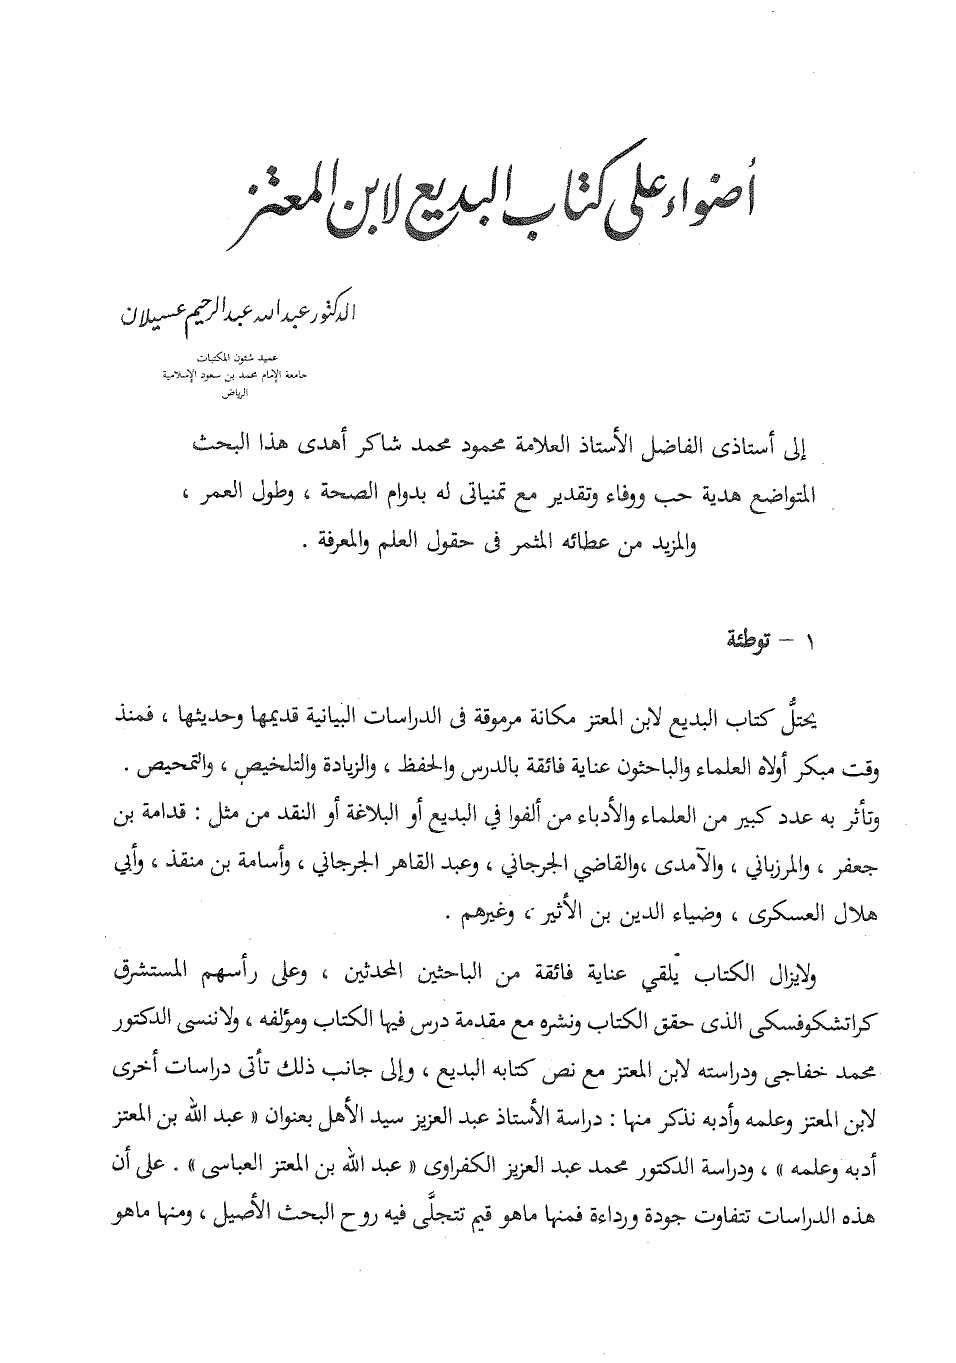 أضواء على كتاب البديع لابن المعتز
الدكتور عبد الله عبد الرحيم عسيلان
عميد شئون المكتبات
جامعة الإمام محمد بن سعود الإسلامية
الرياض
إلى أستاذى الفاضل الأستاذ العلامة محمود محمد شاكر أهدى هذا البحث
المتواضع هدية حب ووفاء وتقدير مع تمنياتى له بدوام الصحة ، وطول العمر ،
والمزيد من عطائه المثمر فى حقول العلم والمعرفة .
١ – توطئة
يحتلُّ كتاب البديع لابن المعتز مكانة مرموقة فى الدراسات البيانية قديمها وحديثها ، فمنذ
وقت مبكر أولاه العلماء والباحثون عناية فائقة بالدرس والحفظ ، والزيادة والتلخيص ، والتمحيص .
وتأثر به عدد كبير من العلماء والأدباء من ألفوا في البديع أو البلاغة أو النقد من مثل : قدامة بن
جعفر ، والمرزباني ، والآمدى ،والقاضي الجرجاني ، وعبد القاهر الجرجاني ، وأسامة بن منقذ ، وأبي
هلال العسكرى ، وضياء الدين بن الأثير ، وغيرهم .
ولايزال الكتاب يلقي عناية فائقة من الباحثين المحدثين ، وعلى رأسهم المستشرق
كراتشكوفسكى الذى حقق الكتاب ونشره مع مقدمة درس فيها الكتاب ومؤلفه ، ولاننسى الدكتور
محمد خفاجى ودراسته لابن المعتز مع نص كتابه البديع ، وإلى جانب ذلك تأتى دراسات أخرى
لابن المعتز وعلمه وأدبه نذكر منها : دراسة الأستاذ عبد العزيز سيد الأهل بعنوان « عبد الله بن المعتز
أدبه وعلمه » ، ودراسة الدكتور محمد عبد العزيز الكفراوى « عبد الله بن المعتز العباسى » . على أن
هذه الدراسات تتفاوت جودة ورداءة فمنها ماهو قيم تتجلَّى فيه روح البحث الأصيل ، ومنها ماهو